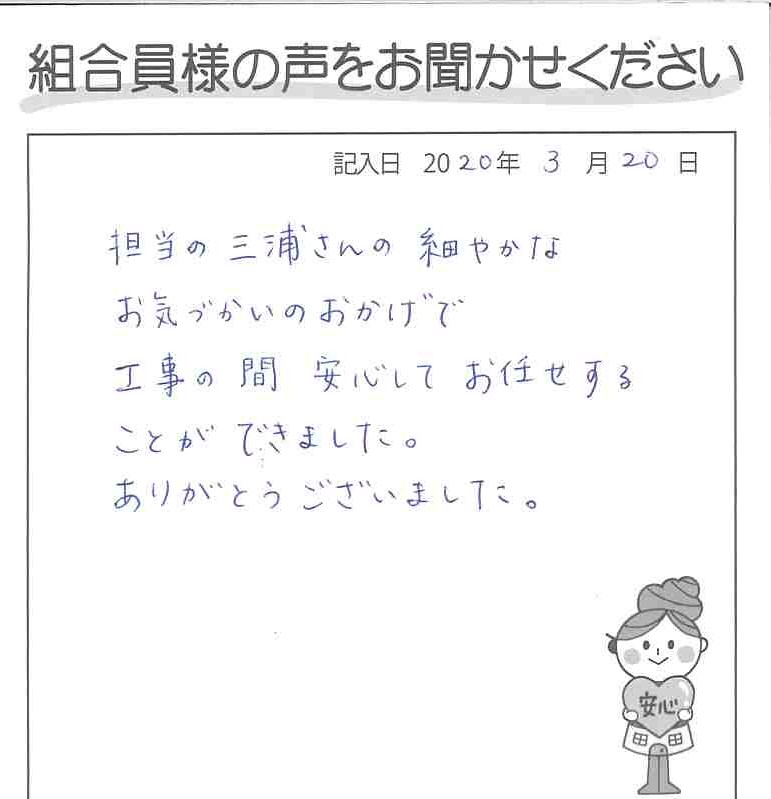 組合員様の声をお聞かせください
記入日 2020年 3月20日
担当の三浦さんの細やかな
お気づかいのおかげで
工事の間 安心してお任せする
ことができました。
ありがとうございました。
安心